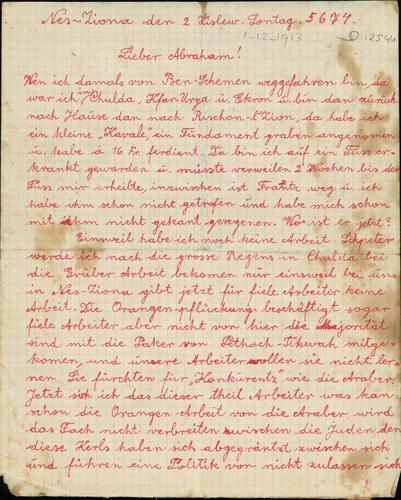 Nes-Ziona den 2 Kislew. Sontag. 5674.
1-12-1913
12544
Lieber Abraham!
Wen ich damals von Ben-Schemen weggefahren bin, da
war ich in Chulda, Kfar-Urya u. Ekron u. bin dan zurück
nach Hause dan nach Rischon-l'Zion, da habe ich
ein kleine "Kavale" ein Fundament graben angenomen
u. habe à 16 Fr. ferdient. Da bin ich auf ein Fuss er-
krankt gewarden u. müsste verweilen 2 Wochen bis der
Fuss mir erheilte, inzwischen ist weg u. ich
habe ihm schon nicht getrofen und habe mich schon
mit ihm nicht gekant gesegenen. Wo ist er jetzt?
Einsweil habe ich noch keine Arbeit. Schpeter
werde ich nach die grosse Regens in Chulda bei
die Grüber Arbeit bekomen nur einsweil bei uns
in Nes-Ziona gibt jetzt für fiele Arbeiter keine
Arbeit. Die Orangen-pflückung beschäftigt sogar
fiele Arbeiter aber nicht von hier die Majorität
sind mit die Paker von Pethach-Tikwah mitge-
komen, und unsere Arbeiter wollen sie nicht ler-
nen. Sie fürchten für "Konkurentz" wie die Araber,
Jetzt seh ich das dieser theil Arbeiter was kan
schon die Orangen-Arbeit von die Araber, wird
das Fach nicht verbreiten zwischen die Juden den
diese Kerls haben sich abgegräntzt zwischen sich
und führen eine Politik von nicht zulassen sich